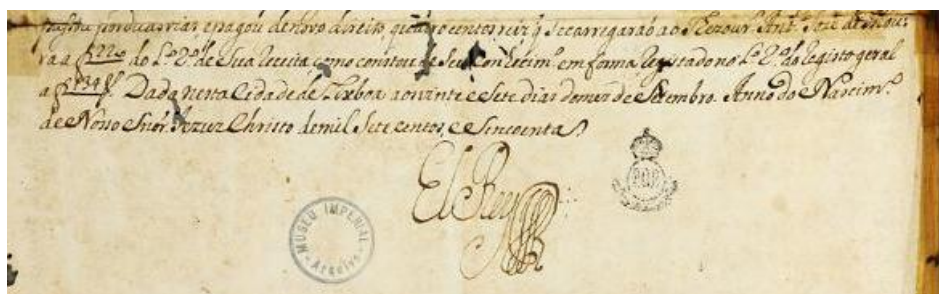 passou por duas vias e pagou de novo direito quatro centos reis q̃ se carregarão ao Thezour.º Ant.º Jozé de
ra a f 220 do L.º 2.º de Sua Receita como constou de Seu Conhecim.to em forma Registado no L.º 2.º do Registo geral
a f 134 Dada nesta Cidade de Lixboa aos vinte e Sete dias do mez de Setembro. Anno do Nascim.to
de Nosso Snõr. Jezuz Christo de mil Sete centos, e Sincoenta
El Rey
MUSEU IMPERIAL
Arquivo